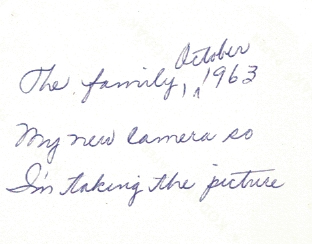 The family, October 1963
My new camera so
I'm taking the picture